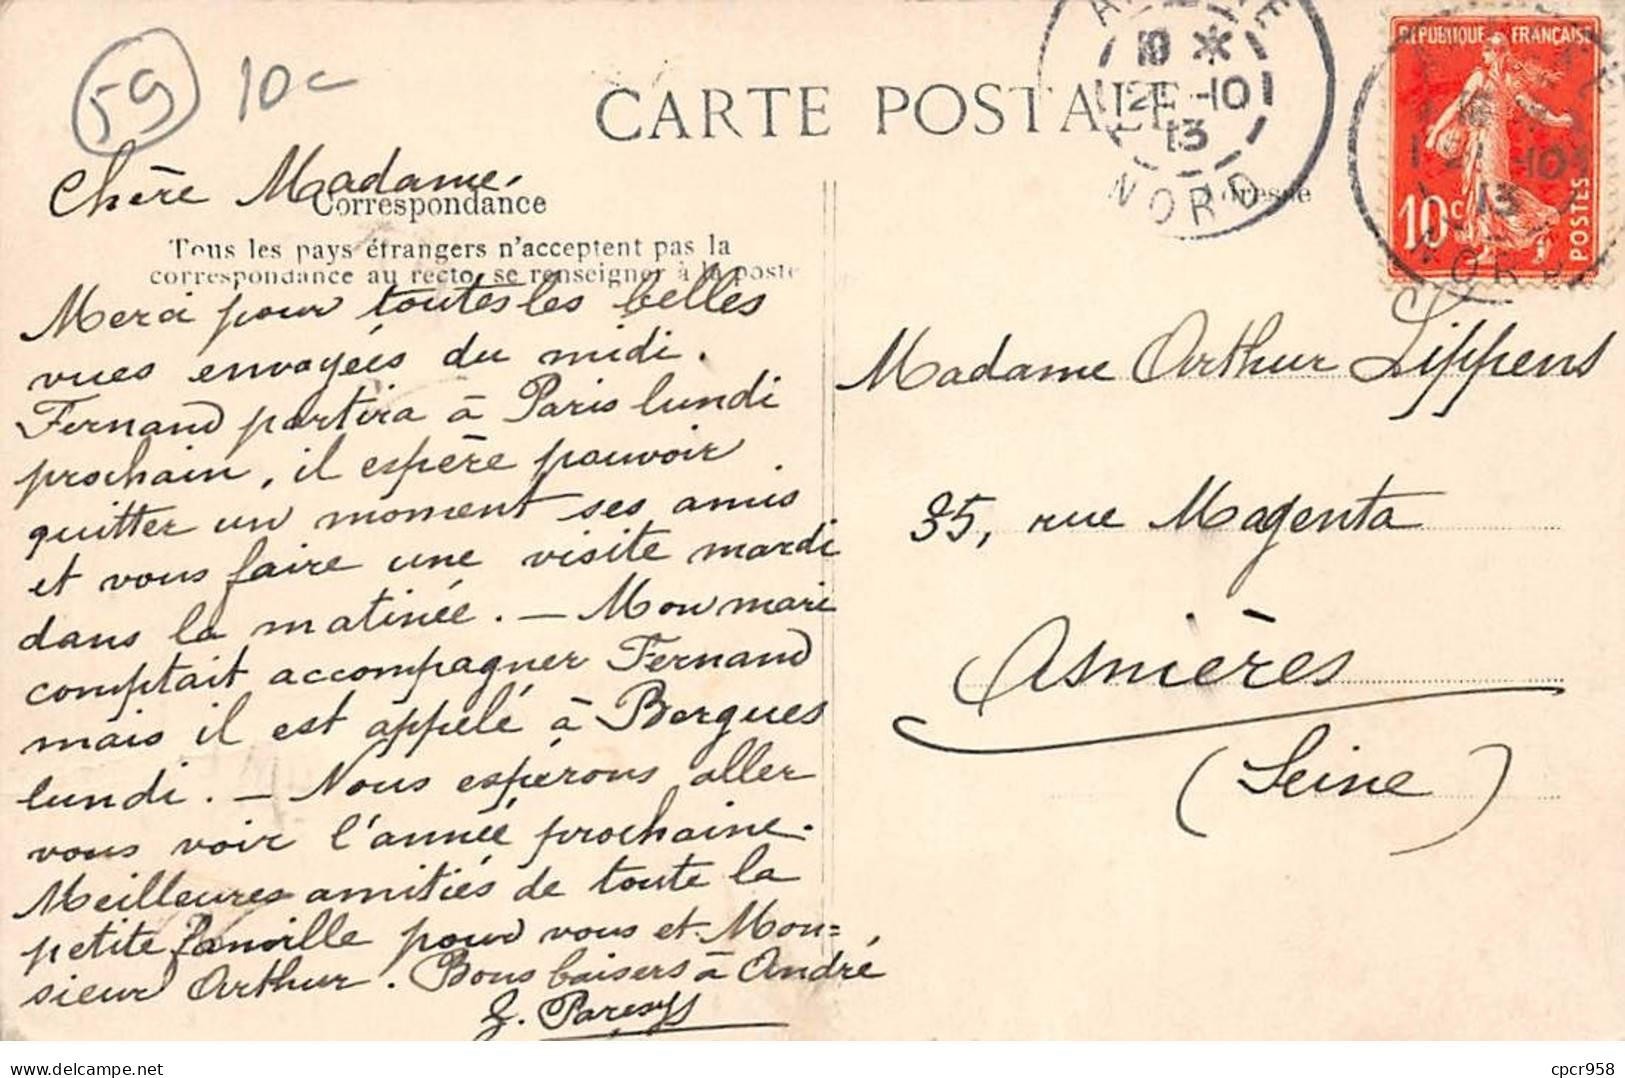 59 10c
CARTE POSTALE
10 *
21 -10
13
NORD
RÉPUBLIQUE FRANÇAISE
10c
POSTES
21 -10
13
NORD
Chère Madame,
Correspondance
Tous les pays étrangers n'acceptent pas la
correspondance au recto, se renseigner à la poste
Merci pour toutes les belles
vues envoyées du midi.
Fernand partira à Paris lundi
prochain, il espère pouvoir
quitter un moment ses amis
et vous faire une visite mardi
dans la matinée. — Mon mari
comptait accompagner Fernand
mais il est appelé à Bergues
lundi. — Nous espérons aller
vous voir l'année prochaine.
Meilleures amitiés de toute la
petite famille pour vous et Mon=
sieur Arthur. Bons baisers à André
Adresse
Madame Arthur Lippens
35, rue Magenta
Asnières
(Seine)
cpcr958